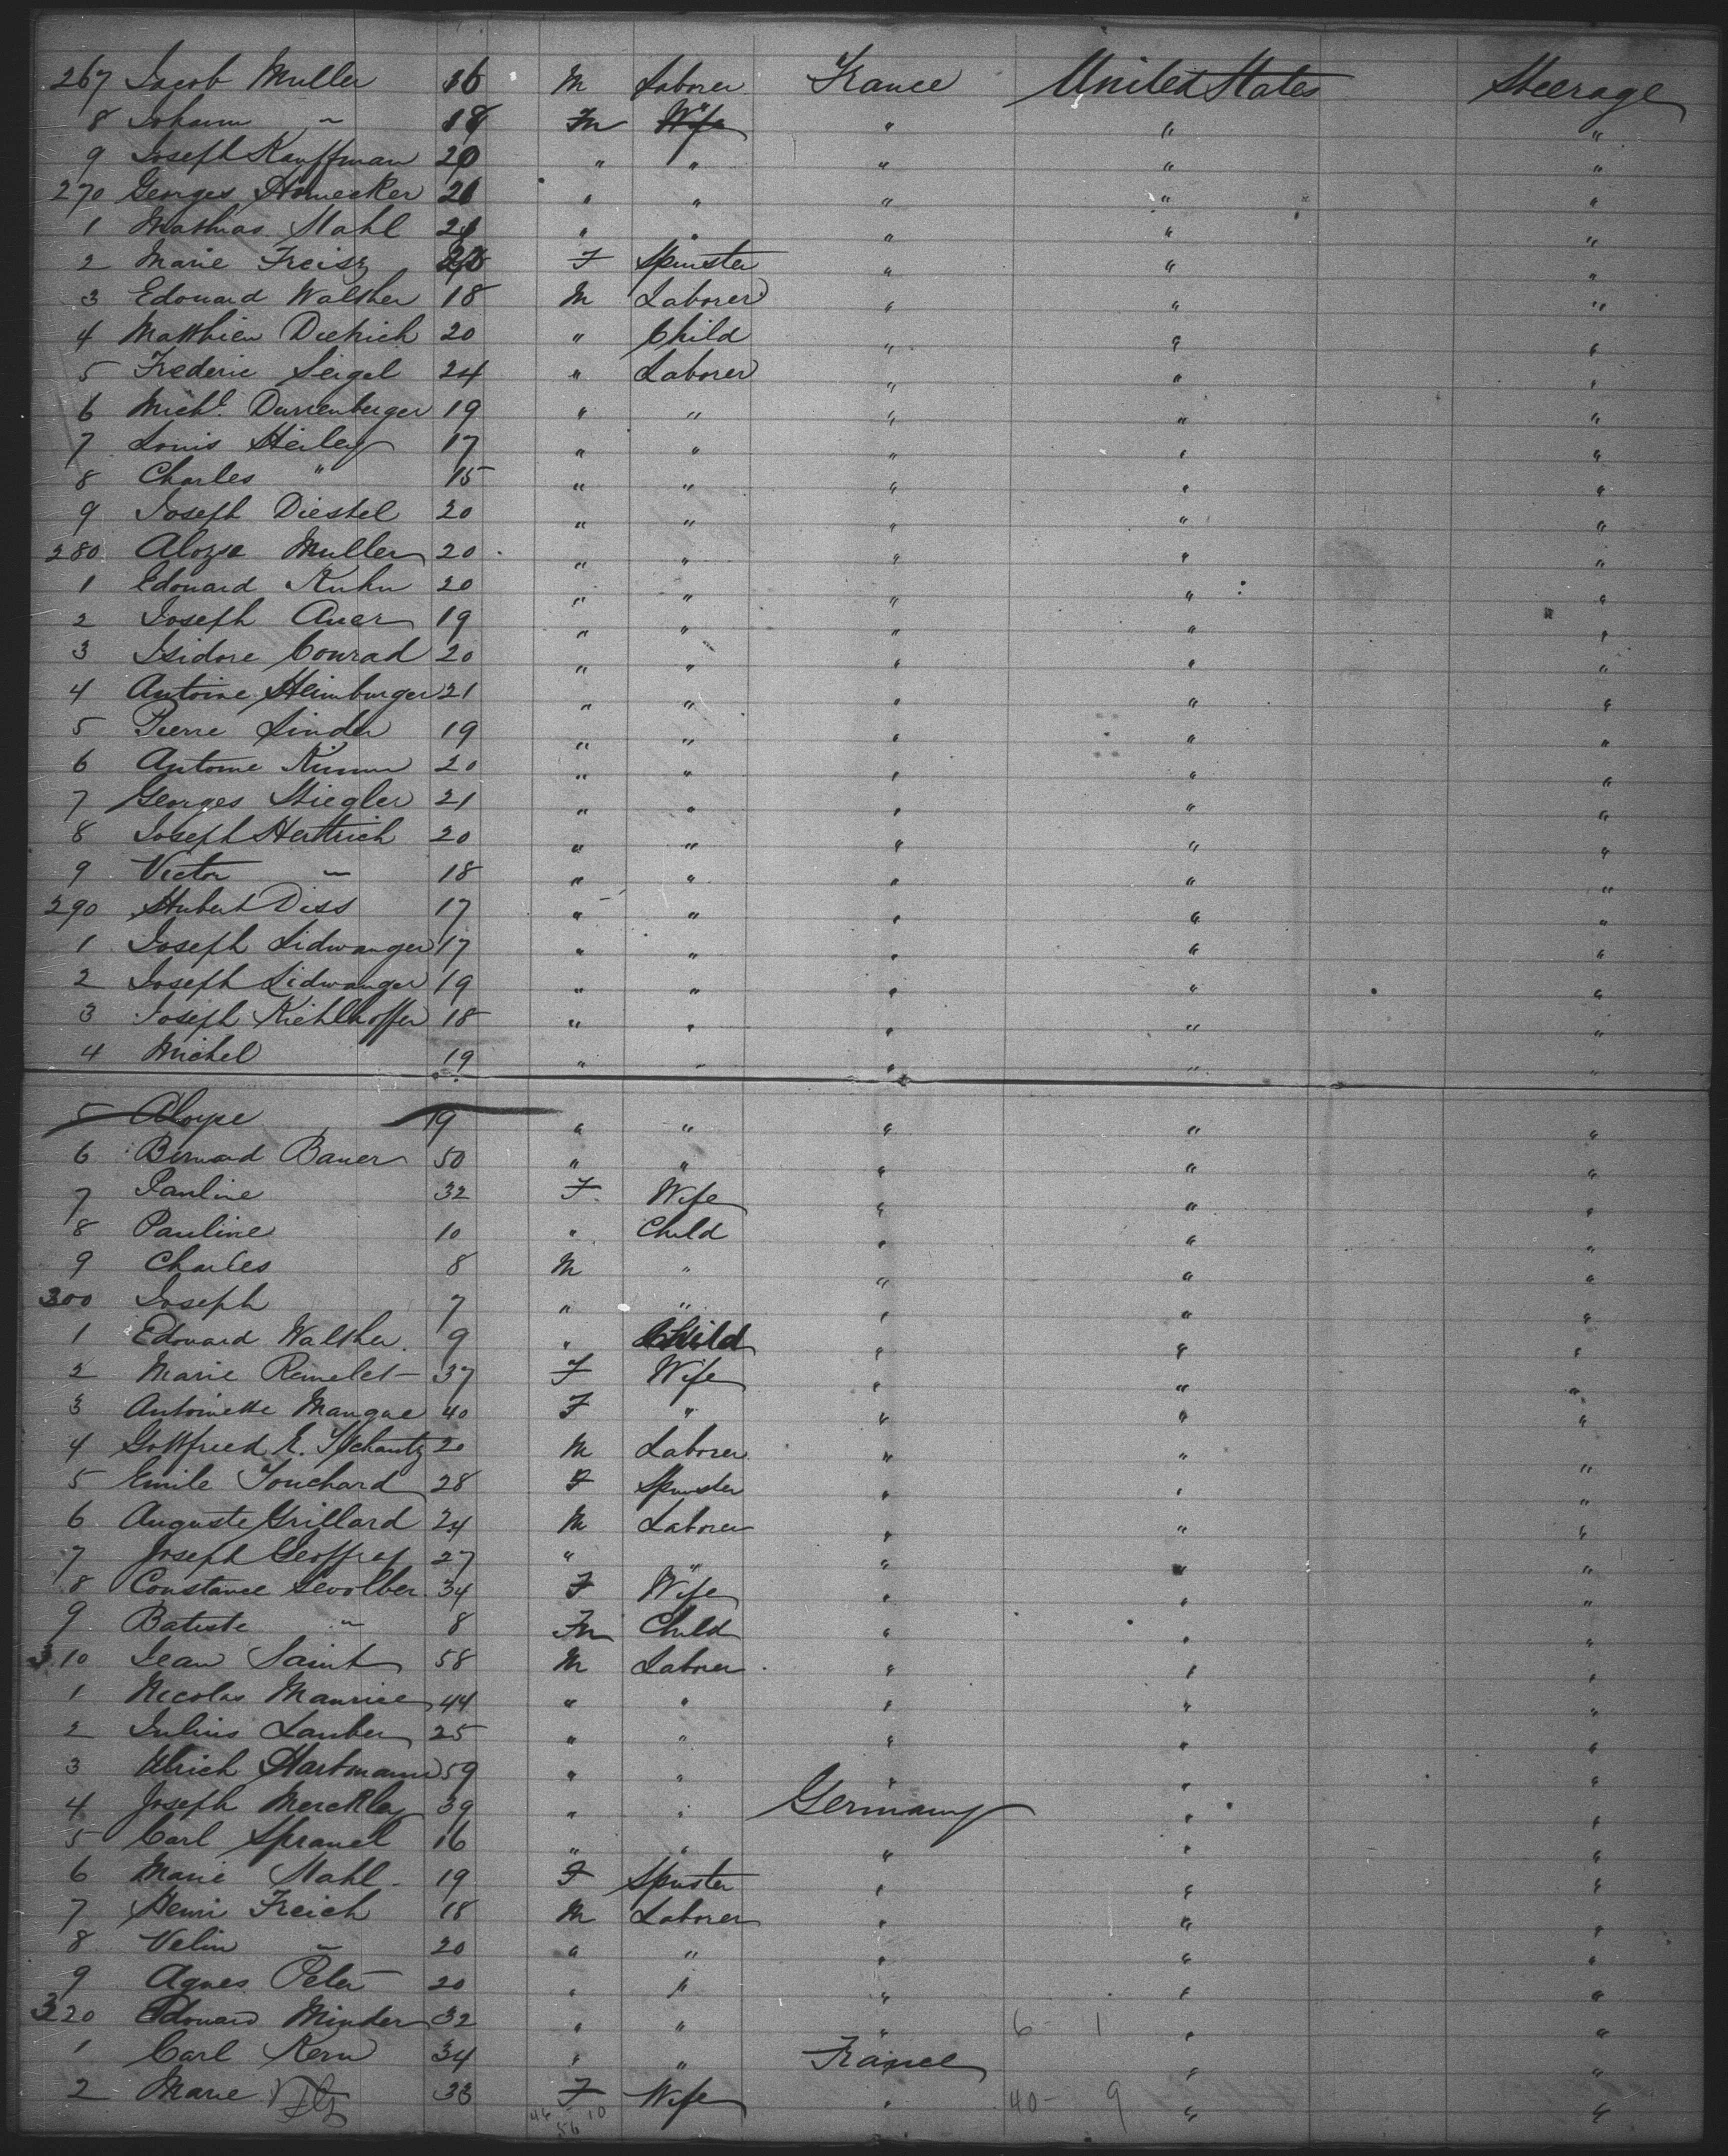 267 Jacob Muller 16 M Laborer France United States Steerage
8 Johann " 18 M Wife " " "
9 Joseph Kauffman 20 " " " " "
270 Georges Honecker 26 " " " " "
1 Mathias Stahl 21 " " " " "
2 Marie Freisz F Spinster " " "
3 Edouard Walther 18 M Laborer " " "
4 Matthieu Dietrich 20 " Child " " "
5 Frederic Seigel 24 " Laborer " " "
6 Michl. Durrenberger 19 " " " " "
7 Louis Heiley 17 " " " " "
8 Charles " 15 " " " " "
9 Joseph Diestel 20 " " " " "
280 Aloyse Muller 20 " " " " "
1 Edouard Kuhn 20 " " " " "
2 Joseph Auer 19 " " " " "
3 Isidore Conrad 20 " " " " "
4 Antoine Heimburger 21 " " " " "
5 Pierre Linder 19 " " " " "
6 Antoine 20 " " " " "
7 Georges Stiegler 21 " " " " "
8 Joseph Hertrich 20 " " " " "
9 Victor " 18 " " " " "
290 Hubert Diss 17 " " " " "
1 Joseph Lidwanger 17 " " " " "
2 Joseph Lidwanger 19 " " " " "
3 Joseph Kiehlhoffer 18 " " " " "
4 Michel 19 " " " " "
5 Aloyse 19 " " " " "
6 Bernard Bauer 50 " " " " "
7 Pauline 32 F Wife " " "
8 Pauline 10 " Child " " "
9 Charles 8 M " " " "
300 Joseph 7 " " " " "
1 Edouard Walther 9 " Child " " "
2 Marie Remelet 37 F Wife " " "
3 Antoinette Mangue 40 F " " " "
4 Gottfried E. Tschantz 20 M Laborer " " "
5 Emile Touchard 28 F Spinster " " "
6 Auguste Grillard 24 M Laborer " " "
7 Joseph Geoffray 27 " " " " "
8 Constance 34 F Wife " " "
9 Batiste " 8 M Child " " "
310 Jean Saint 58 M Laborer " " "
1 Nicolas Maurice 44 " " " " "
2 Julius Lauber 25 " " " " "
3 Ulrich Hartmann 59 " " " " "
4 Joseph Merckley 39 " " Germany " "
5 Carl Spranel 16 " " " " "
6 Marie Stahl 19 F Spinster " " "
7 Henri Freich 18 M Laborer " " "
8 Velin " 20 " " " " "
9 Agnes Peter 20 " " " " "
320 Edouard Minder 32 " " " 6 - 1 " "
1 Carl Kern 34 " " France " "
2 Marie 33 F Wife " 40 - 9 " "
46 - 10
56